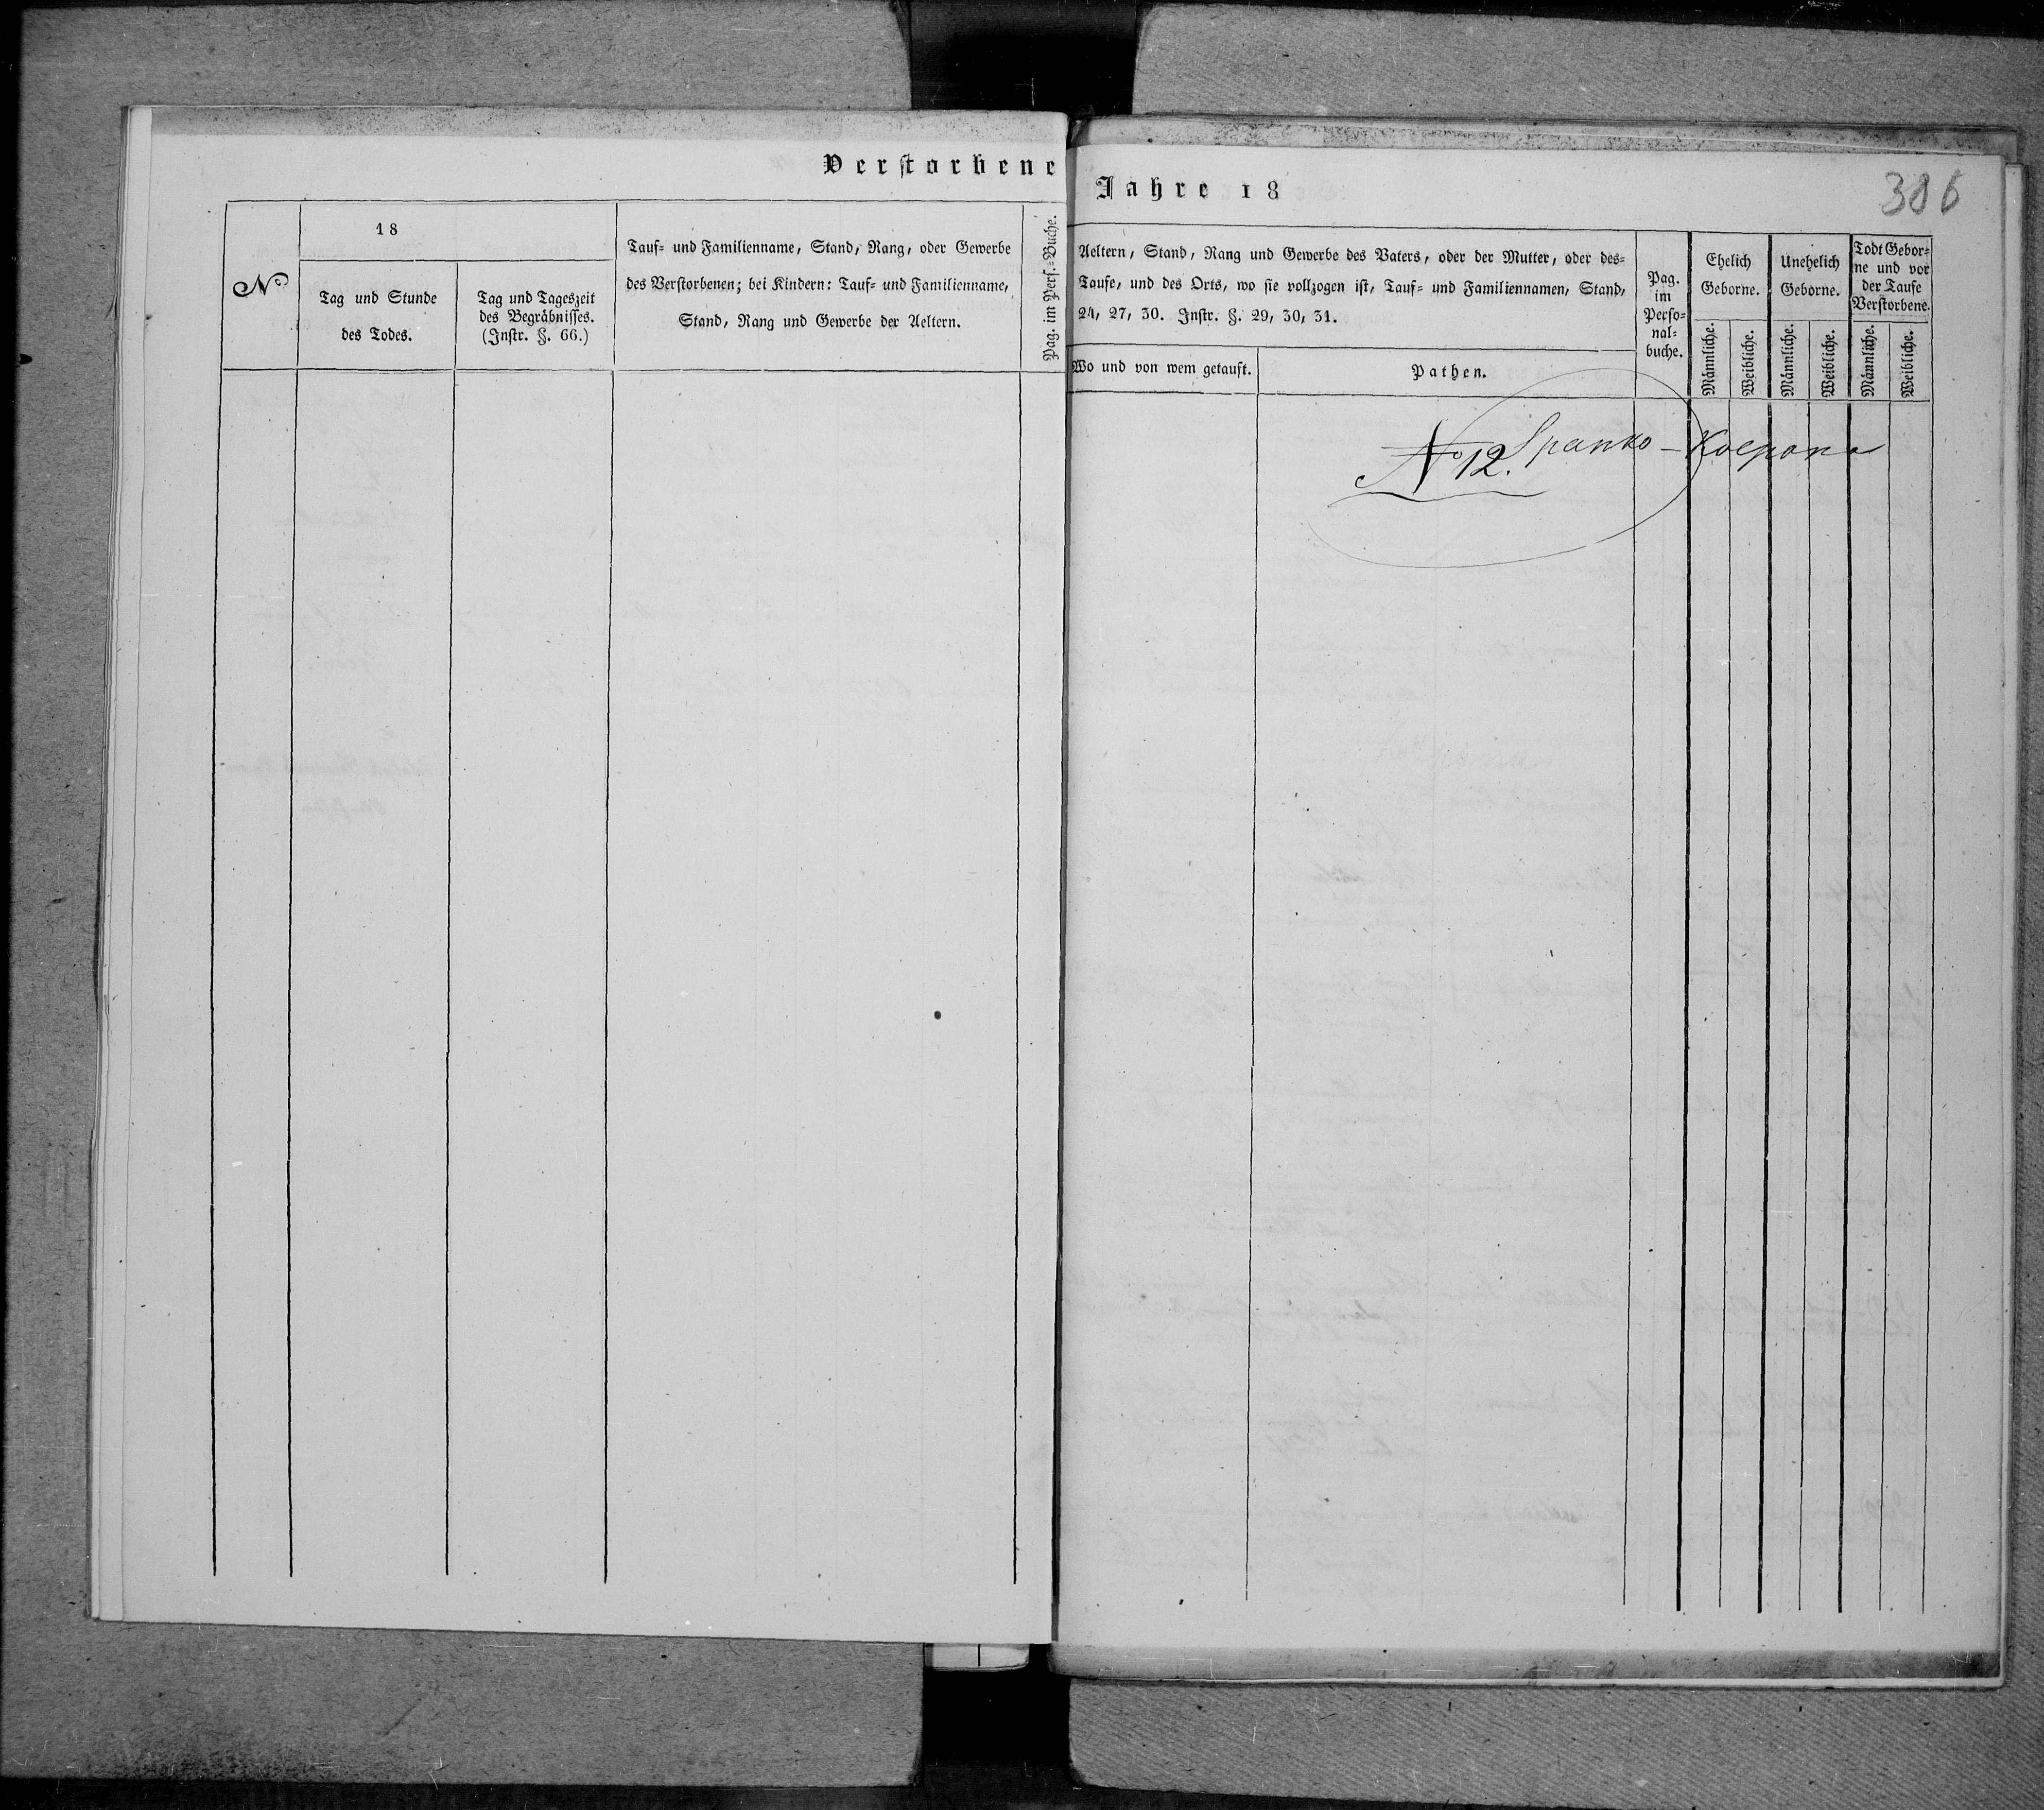 Verstorbene
N⁰
18
Tag und Stunde
des Todes.
Tag und Tageszeit
des Begräbnisses.
(Instr. §. 66.)
Tauf- und Familienname, Stand, Rang, oder Gewerbe
des Verstorbenen; bei Kindern: Tauf- und Familienname,
Stand, Rang und Gewerbe der Aeltern.
Pag. im Pers.-Buche.
Jahre 18
386
Aeltern, Stand, Rang und Gewerbe des Vaters, oder der Mutter, oder des-
Taufe, und des Orts, wo sie vollzogen ist, Tauf- und Familiennamen, Stand,
24, 27, 30. Instr. §. 29, 30, 31.
Wo und von wem getauft.
Pathen.
Pag.
im
Perso-
nal-
buche.
Ehelich
Geborne.
Männliche.
Weibliche.
Unehelich
Geborne.
Männliche.
Weibliche.
Todt Gebor-
ne und vor
der Taufe
Verstorbene.
Männliche.
Weibliche.
N⁰ 12. Spanko – Koepona